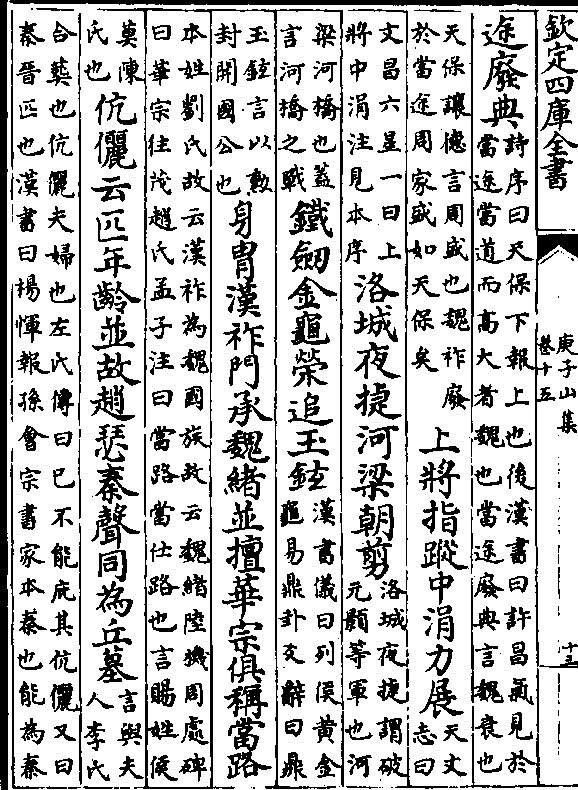 欽定四庫全書
庚子山集
卷十五
十三
途廢典
詩序曰天保下報上也後漢書曰許昌氣見於
當途當道而高大者魏也當途廢典言魏衰也
天保讓德言周盛也魏祚廢
於當途周家盛如天保矣
上將指蹤中涓力展
天文
志曰
文昌六星一曰上
將中涓注見本序
洛城夜捷河梁朝剪
洛城夜捷謂破
元顥等軍也河
梁河橋也蓋
言河橋之戰
鐵劒金龜榮追玉鉉
漢書儀曰列侯黄金
龜易鼎卦爻辭曰鼎
玉鉉言以勲
封開國公也
身胄漢祚門承魏緒並擅華宗俱稱當路
本姓劉氏故云漢祚為魏國族故云魏緒陸機周處碑
曰華宗往茂趙氏孟子注曰當路當仕路也言賜姓侯
莫陳
氏也
伉儷云匹年齡並故趙瑟秦聲同為丘墓
言與夫
人李氏
合葬也伉儷夫婦也左氏傳曰已不能庇其伉儷又曰
秦晉匹也漢書曰楊惲報孫會宗書家本秦也能為秦